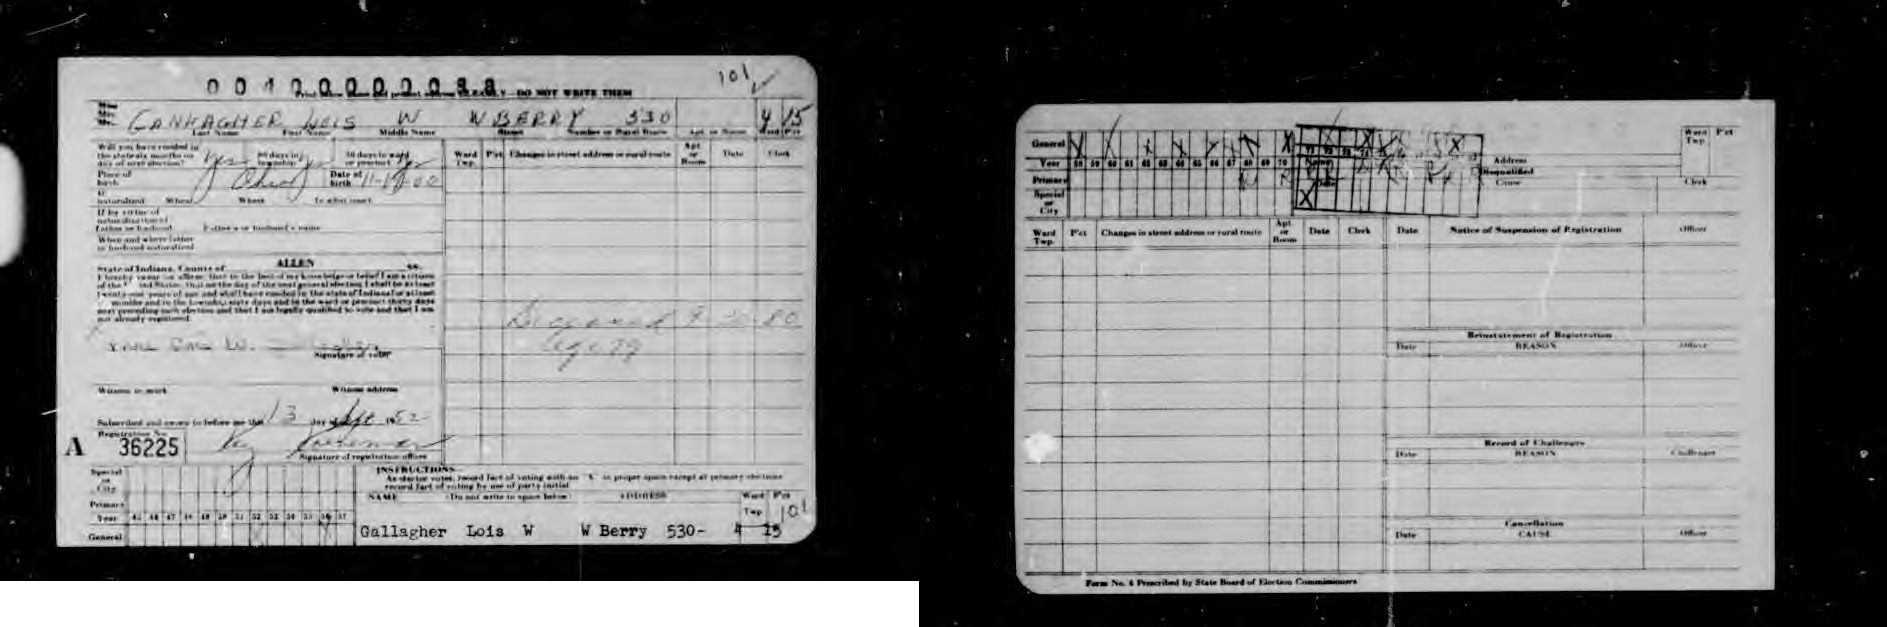 101
DO NOT WRITE THEM
Miss
Mrs.
Mr. GALLAGHER LOIS W W BERRY 530 4 15
Last Name First Name Middle Name Street Number or Rural Route Apt. or Room Ward P'ct
Will you have resided in the state six months on day of next election? Yes 60 days in township 30 days in ward or precinct
Ward Twp. P'ct Changes in street address or rural route Apt. or Room Date Clerk
Place of birth Ohio Date of birth
If naturalized When Where In what court
If by virtue of naturalization of father or husband Father's or husband's name
When and where father or husband naturalized
State of Indiana, County of ALLEN ss.
I hereby swear (or affirm) that to the best of my knowledge or belief I am a citizen
of the United States, that on the day of the next general election I shall be at least
twenty-one years of age and shall have resided in the state of Indiana for at least
months and in the township sixty days and in the ward or precinct thirty days
next preceding such election and that I am legally qualified to vote and that I am
not already registered.
Deceased 80
age 79
Signature of voter
Witness to mark Witness address
Subscribed and sworn to before me this 13 day of Sept 1952
Registration No.
A 36225
Signature of registration officer
Special or City
Primary
Year 45 46 47 48 49 50 51 52 53 54 55 56 57
General
INSTRUCTIONS
As elector votes, record fact of voting with an "X" in proper space except at primary elections
record fact of voting by use of party initial.
NAME (Do not write in space below) ADDRESS Ward Twp P'ct
101
Gallagher Lois W W Berry 530- 4 15
General
Year 58 59 60 61 62 63 64 65 66 67 68 69 70
Primary
Special or City
Name
Date
Address
Disqualified
Cause
Clerk
Ward Twp. P'ct
Ward Twp. P'ct Changes in street address or rural route Apt. or Room Date Clerk
Date Notice of Suspension of Registration Officer
Reinstatement of Registration
Date REASON Officer
Record of Challenges
Date REASON Challenger
Cancellation
Date CAUSE Officer
Form No. 6 Prescribed by State Board of Election Commissioners